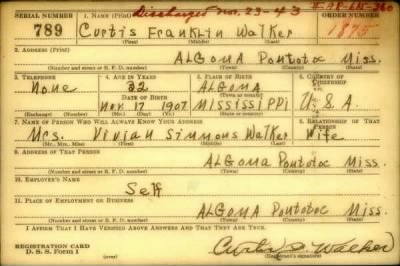 SERIAL NUMBER
1. NAME (Print) Discharged Nov. 23-43
ORDER NUMBER
789 Curtis Franklin Walker 1875
2. ADDRESS (Print)
ALGOMA Pontotoc Miss.
(Number and street or R. F. D. number) (Town) (County) (State)
3. TELEPHONE 4. AGE IN YEARS 5. PLACE OF BIRTH 6. COUNTRY OF CITIZENSHIP
None 32 ALGOMA
(Town or county)
DATE OF BIRTH
Nov 17 1907 MISSISSIPPI U.S.A.
(Exchange) (Number) (Mo.) (Day) (Yr.) (State or country)
7. NAME OF PERSON WHO WILL ALWAYS KNOW YOUR ADDRESS 8. RELATIONSHIP OF THAT PERSON
Mrs. Vivian Simmons Walker Wife
(Mr., Mrs., Miss) (First) (Middle) (Last)
9. ADDRESS OF THAT PERSON
ALGOMA Pontotoc Miss.
(Number and street or R. F. D. number) (Town) (County) (State)
10. EMPLOYER'S NAME
Self
11. PLACE OF EMPLOYMENT OR BUSINESS
ALGOMA Pontotoc Miss.
(Number and street or R. F. D. number) (Town) (County) (State)
I AFFIRM THAT I HAVE VERIFIED ABOVE ANSWERS AND THAT THEY ARE TRUE.
REGISTRATION CARD
D. S. S. Form 1
Curtis F. Walker
(Registrant's signature)